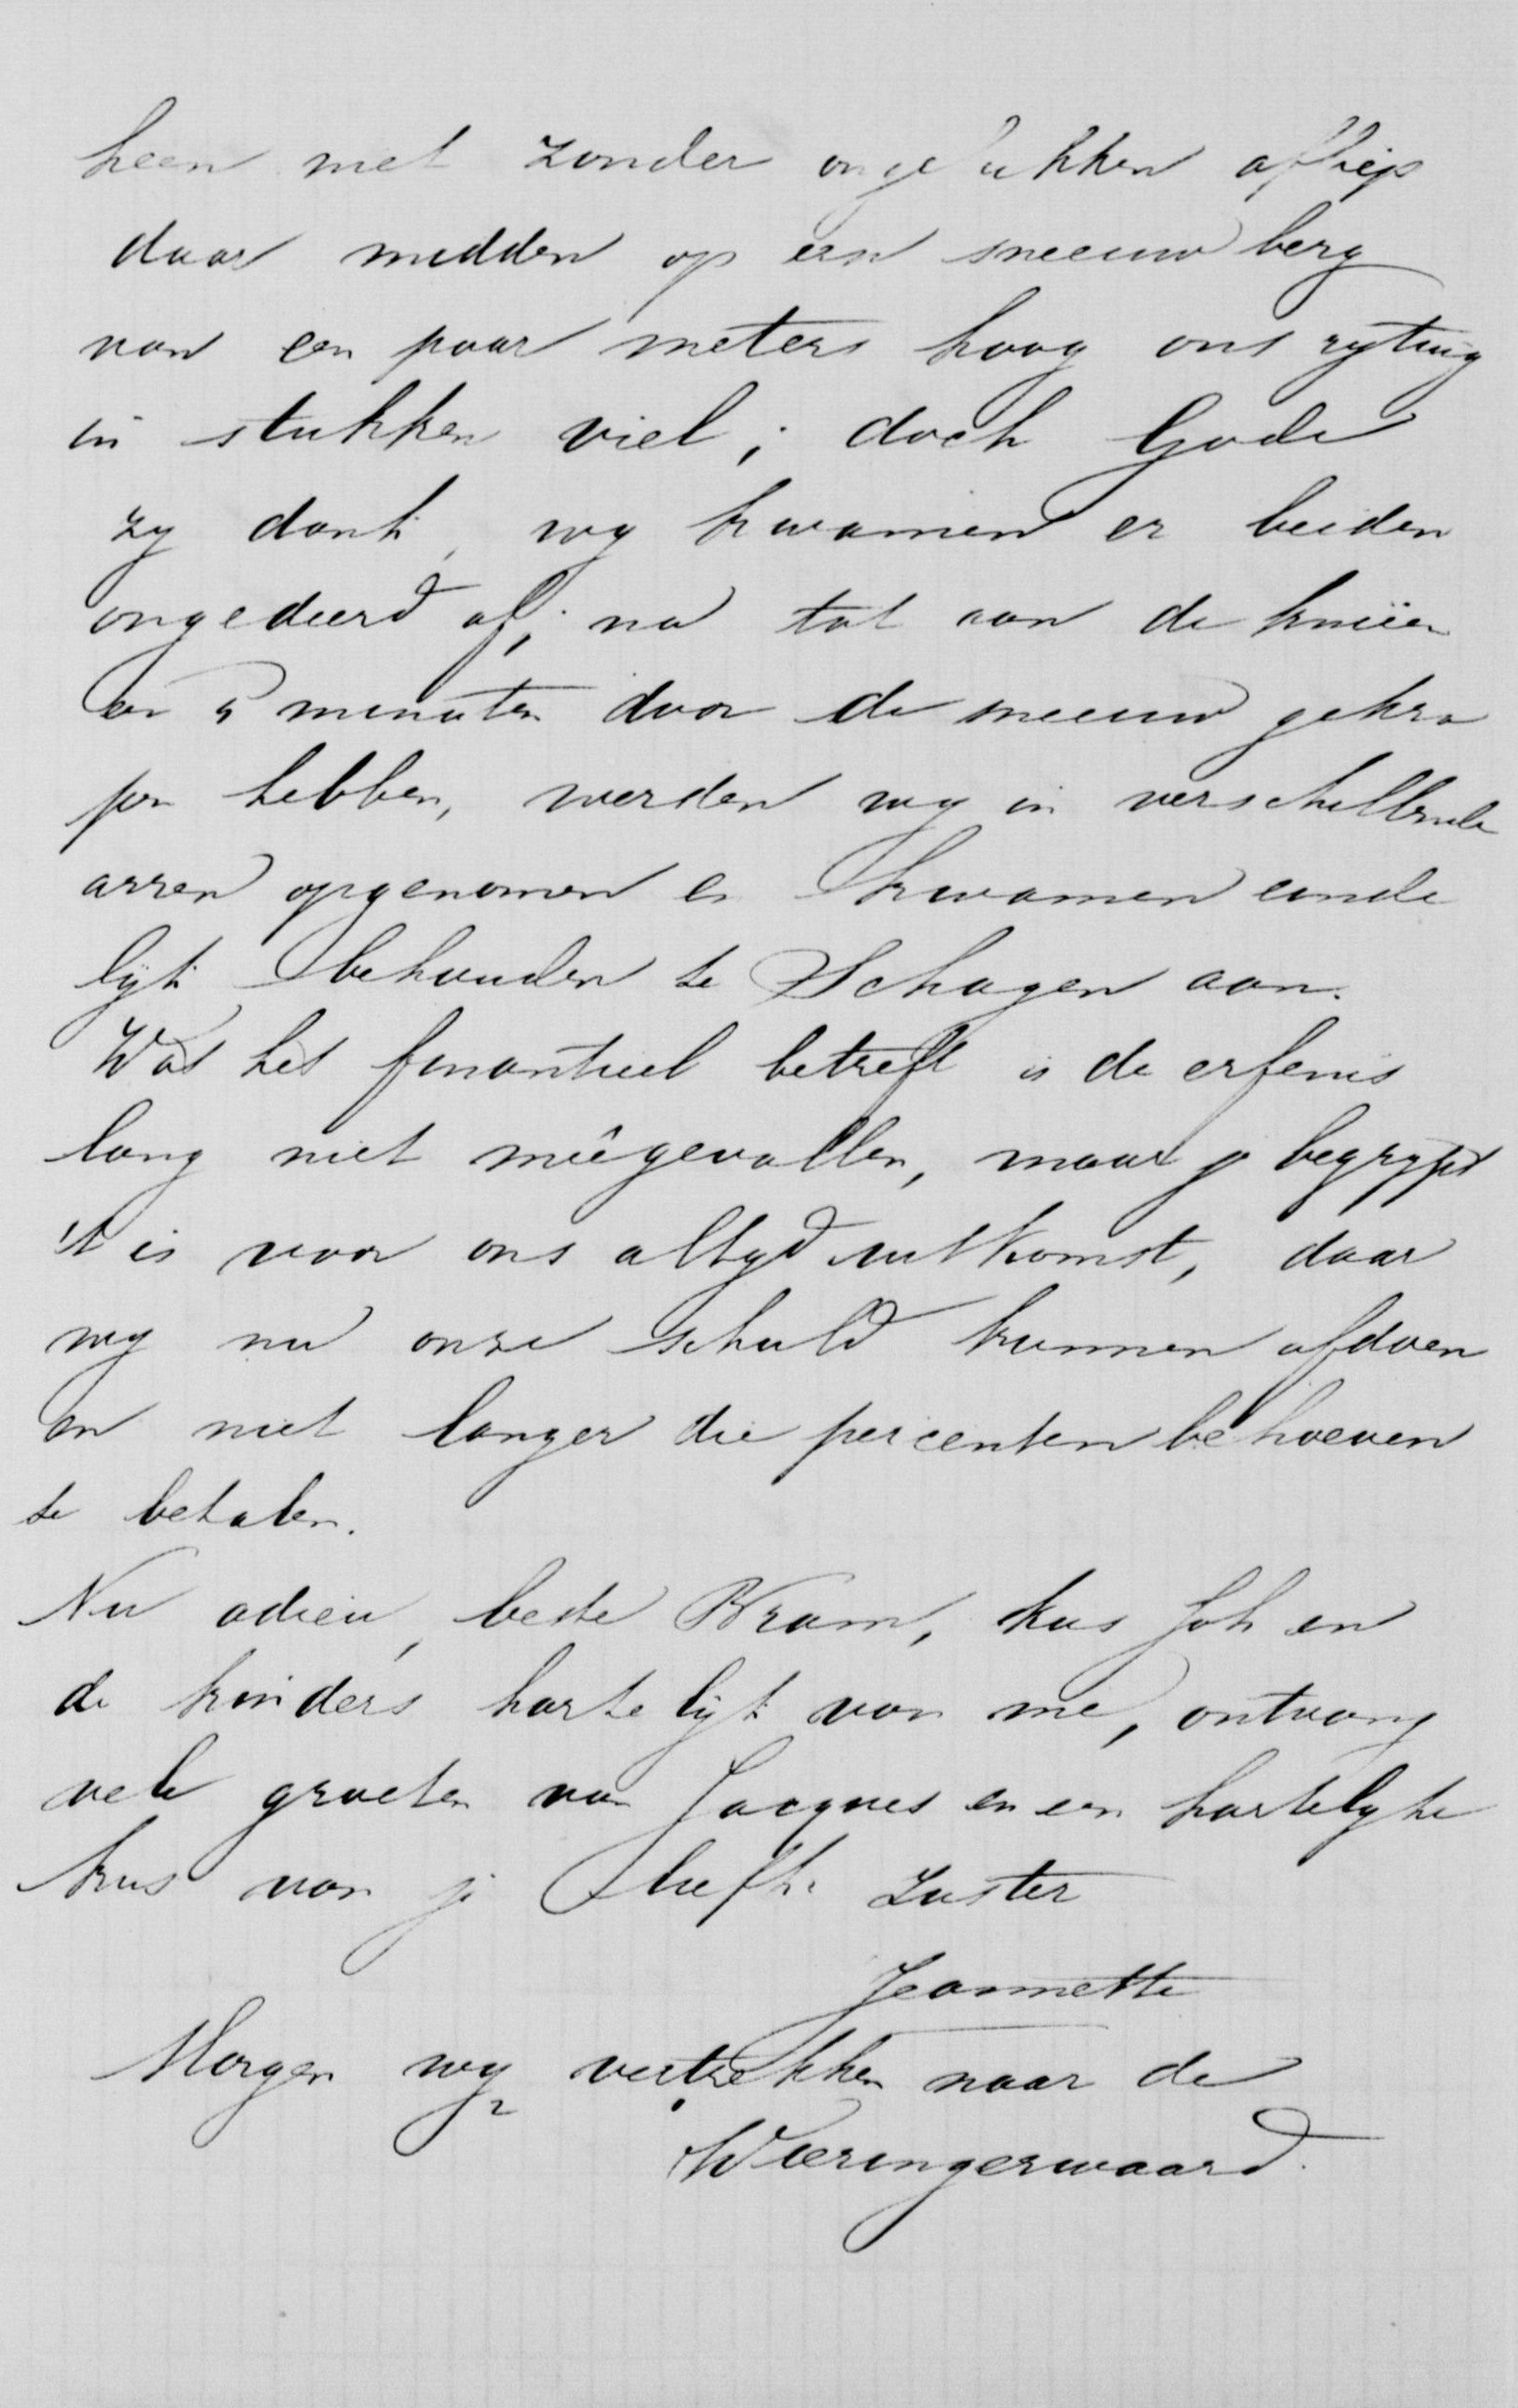 heen niet zonder ongelukken afliep
daar midden op een sneeuw berg
van een paar meters hoog ons rytuig
in stukken viel; doch Gode
zy dank, wy kwamen er beiden
ongedeerd af; na tot aan de knieën
een 5 minuten door de sneeuw gekro
pen hebben, werden wy in verschillende
arren opgenomen en kwamen einde
lijk behouden te Schagen aan.
Wat het finantieel betreft is de erfenis
lang niet meêgevallen, maar je begrypt
't is voor ons altyd uitkomst, daar
wy nu onze schuld kunnen afdoen
en niet langer die percenten behoeven
te betalen.
Nu adieu, beste Bram, kus Joh en
de kinders hartelijk van me, ontvang
vele groeten van Jacques en een hartelyke
kus van je liefh. zuster
Jeannette
Morgen wy vertrekken naar de
Wieringerwaard.